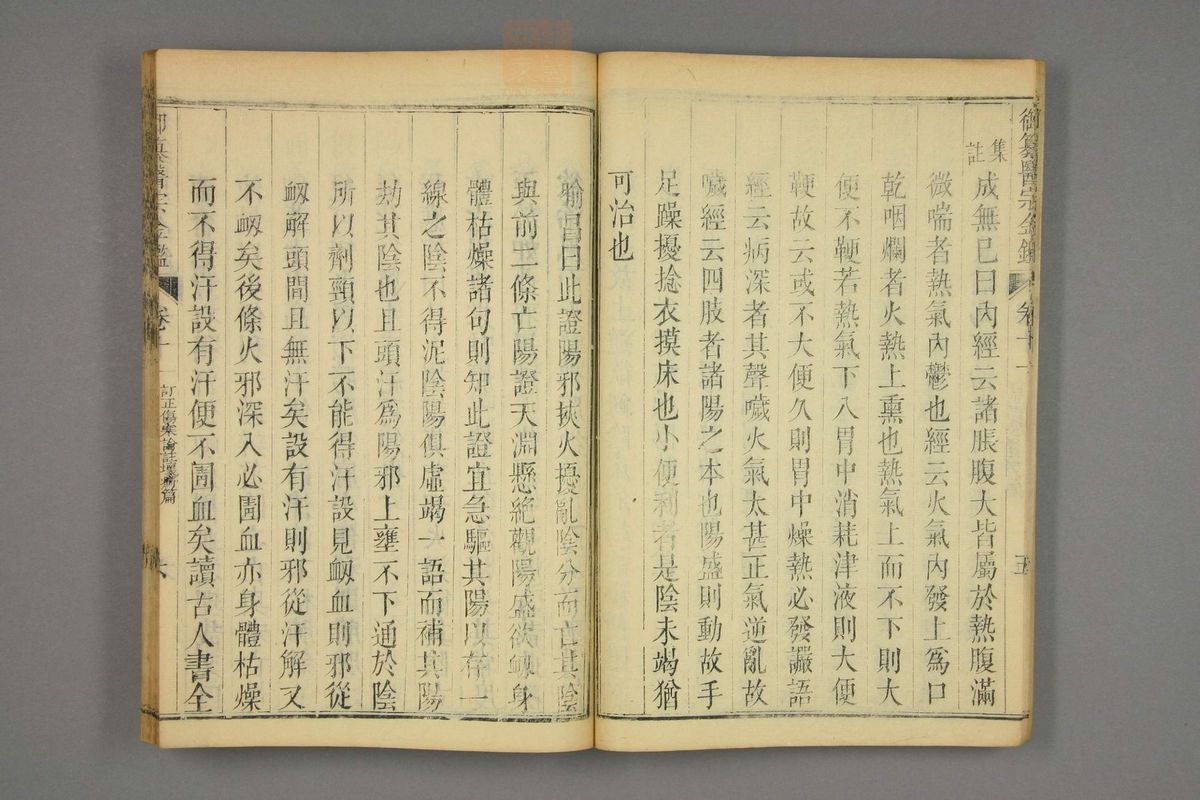 御纂醫宗金鑑 卷十一 五
集註
成無已曰內經云諸脹腹大皆屬於熱腹滿
微喘者熱氣內鬱也經云火氣內發上爲口
乾咽爛者火熱上熏也熱氣上而不下則大
便不鞕若熱氣下入胃中消耗津液則大便
鞕故云或不大便久則胃中燥熱必發讝語
經云病深者其聲噦火氣太甚正氣逆亂故
噦經云四肢者諸陽之本也陽盛則動故手
足躁擾捻衣摸床也小便利者是陰未竭猶
可治也
喻昌曰此證陽邪挾火擾亂陰分而亡其陰
與前二條亡陽證天淵懸絶觀陽盛欲衂身
體枯燥諸句則知此證宜急驅其陽以存一
線之陰不得泥陰陽俱虛竭一語而補其陽
劫其陰也且頭汗爲陽邪上壅不下通於陰
所以劑頸以下不能得汗設見衂血則邪從
衂解頭間且無汗矣設有汗則邪從汗解又
不衂矣後條火邪深入必圊血亦身體枯燥
而不得汗設有汗便不圊血矣讀古人書全
御纂醫宗金鑑 卷十一 訂正傷寒論註壞病篇 六